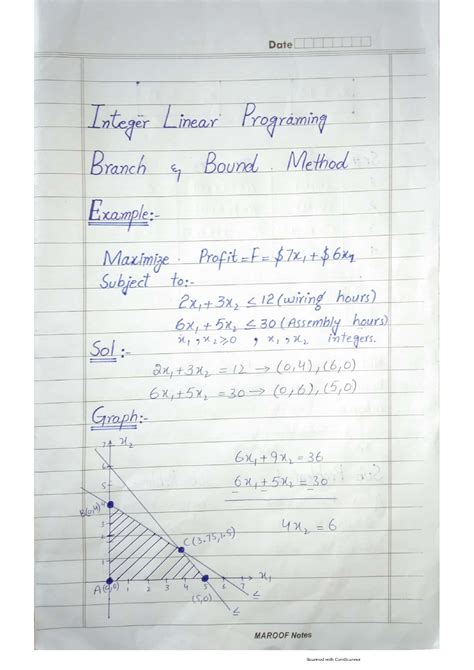 Date
Integer Linear Programing
Branch & Bound Method
Example:-
Maximize. Profit = F = $7x₁ + $6x₂
Subject to:-
2x₁ + 3x₂ ≤ 12 (wiring hours)
6x₁ + 5x₂ ≤ 30 (Assembly hours)
x₁, x₂ ≥ 0 , x₁, x₂ integers.
Sol:-
2x₁ + 3x₂ = 12 → (0,4), (6,0)
6x₁ + 5x₂ = 30 → (0,6), (5,0)
Graph:-
7 x₂
6
5
B(0,4)
3
2
1
A(0,0)
1 2 3 4 5 6 7 x₁
C(3.75,1.5)
(5,0)
≤ ≤
6x₁ + 9x₂ = 36
6x₁ + 5x₂ = 30
4x₂ = 6
MAROOF Notes
Scanned with CamScanner